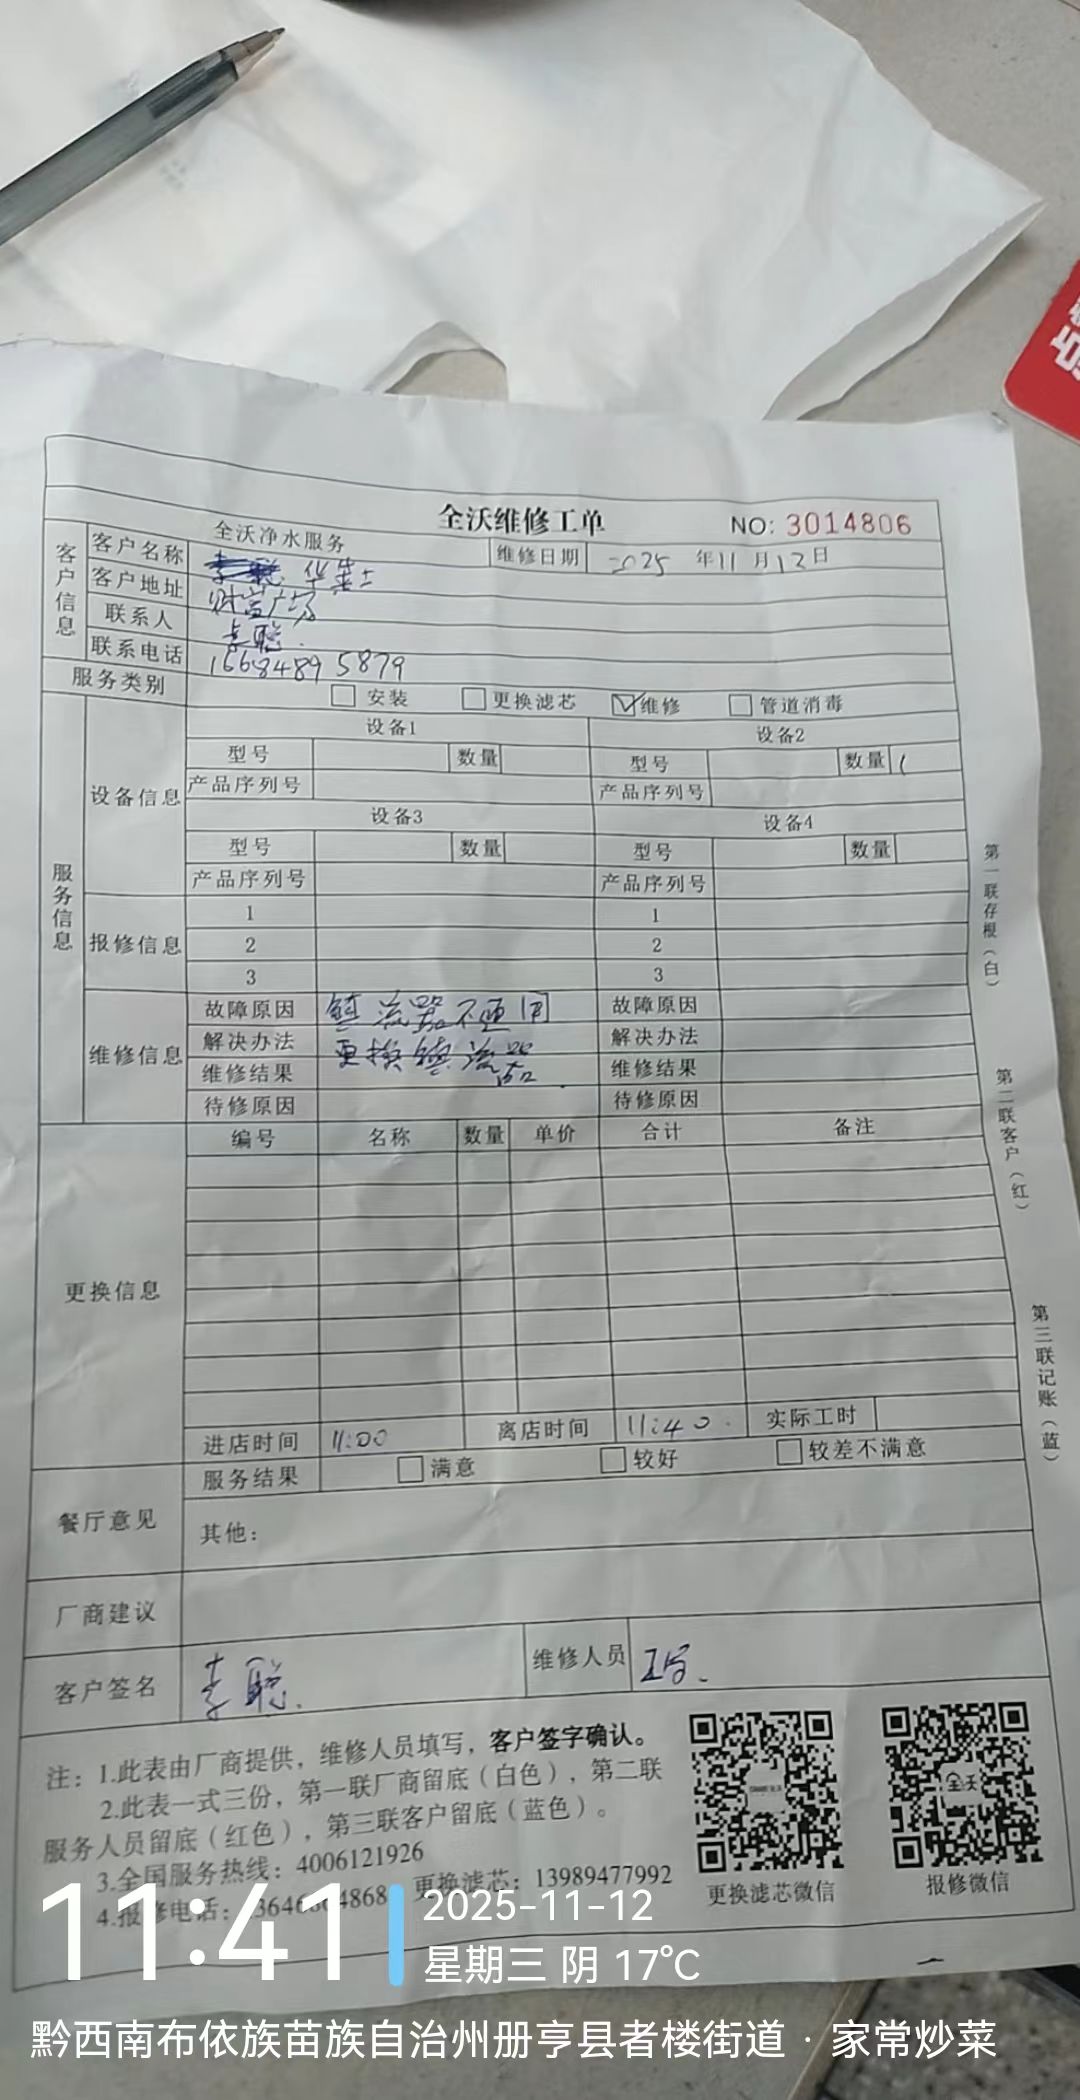 全沃维修工单
NO: 3014806
客户信息
客户名称 全沃净水服务 华莱士
维修日期 2025 年11月12日
客户地址 财富广场
联系人 李聪
联系电话 16684895879
服务类别 安装 更换滤芯 维修 管道消毒
服务信息
设备信息
设备1 设备2
型号 数量 型号 数量 1
产品序列号 产品序列号
设备3 设备4
型号 数量 型号 数量
产品序列号 产品序列号
报修信息
1 1
2 2
3 3
维修信息
故障原因 镇流器不通用 故障原因
解决办法 更换镇流器 解决办法
维修结果 维修结果
待修原因 待修原因
更换信息
编号 名称 数量 单价 合计 备注
进店时间 11:00 离店时间 11:40 实际工时
餐厅意见
服务结果 满意 较好 较差不满意
其他:
厂商建议
客户签名 李聪 维修人员
注: 1.此表由厂商提供，维修人员填写，客户签字确认。
2.此表一式三份，第一联厂商留底（白色），第二联
服务人员留底（红色），第三联客户留底（蓝色）。
3.全国服务热线: 4006121926
4.报修电话: 更换滤芯: 13989477992
更换滤芯微信
报修微信
第一联存根（白）
第二联客户（红）
第三联记账（蓝）
11:41
2025-11-12
星期三 阴 17℃
黔西南布依族苗族自治州册亨县者楼街道 · 家常炒菜